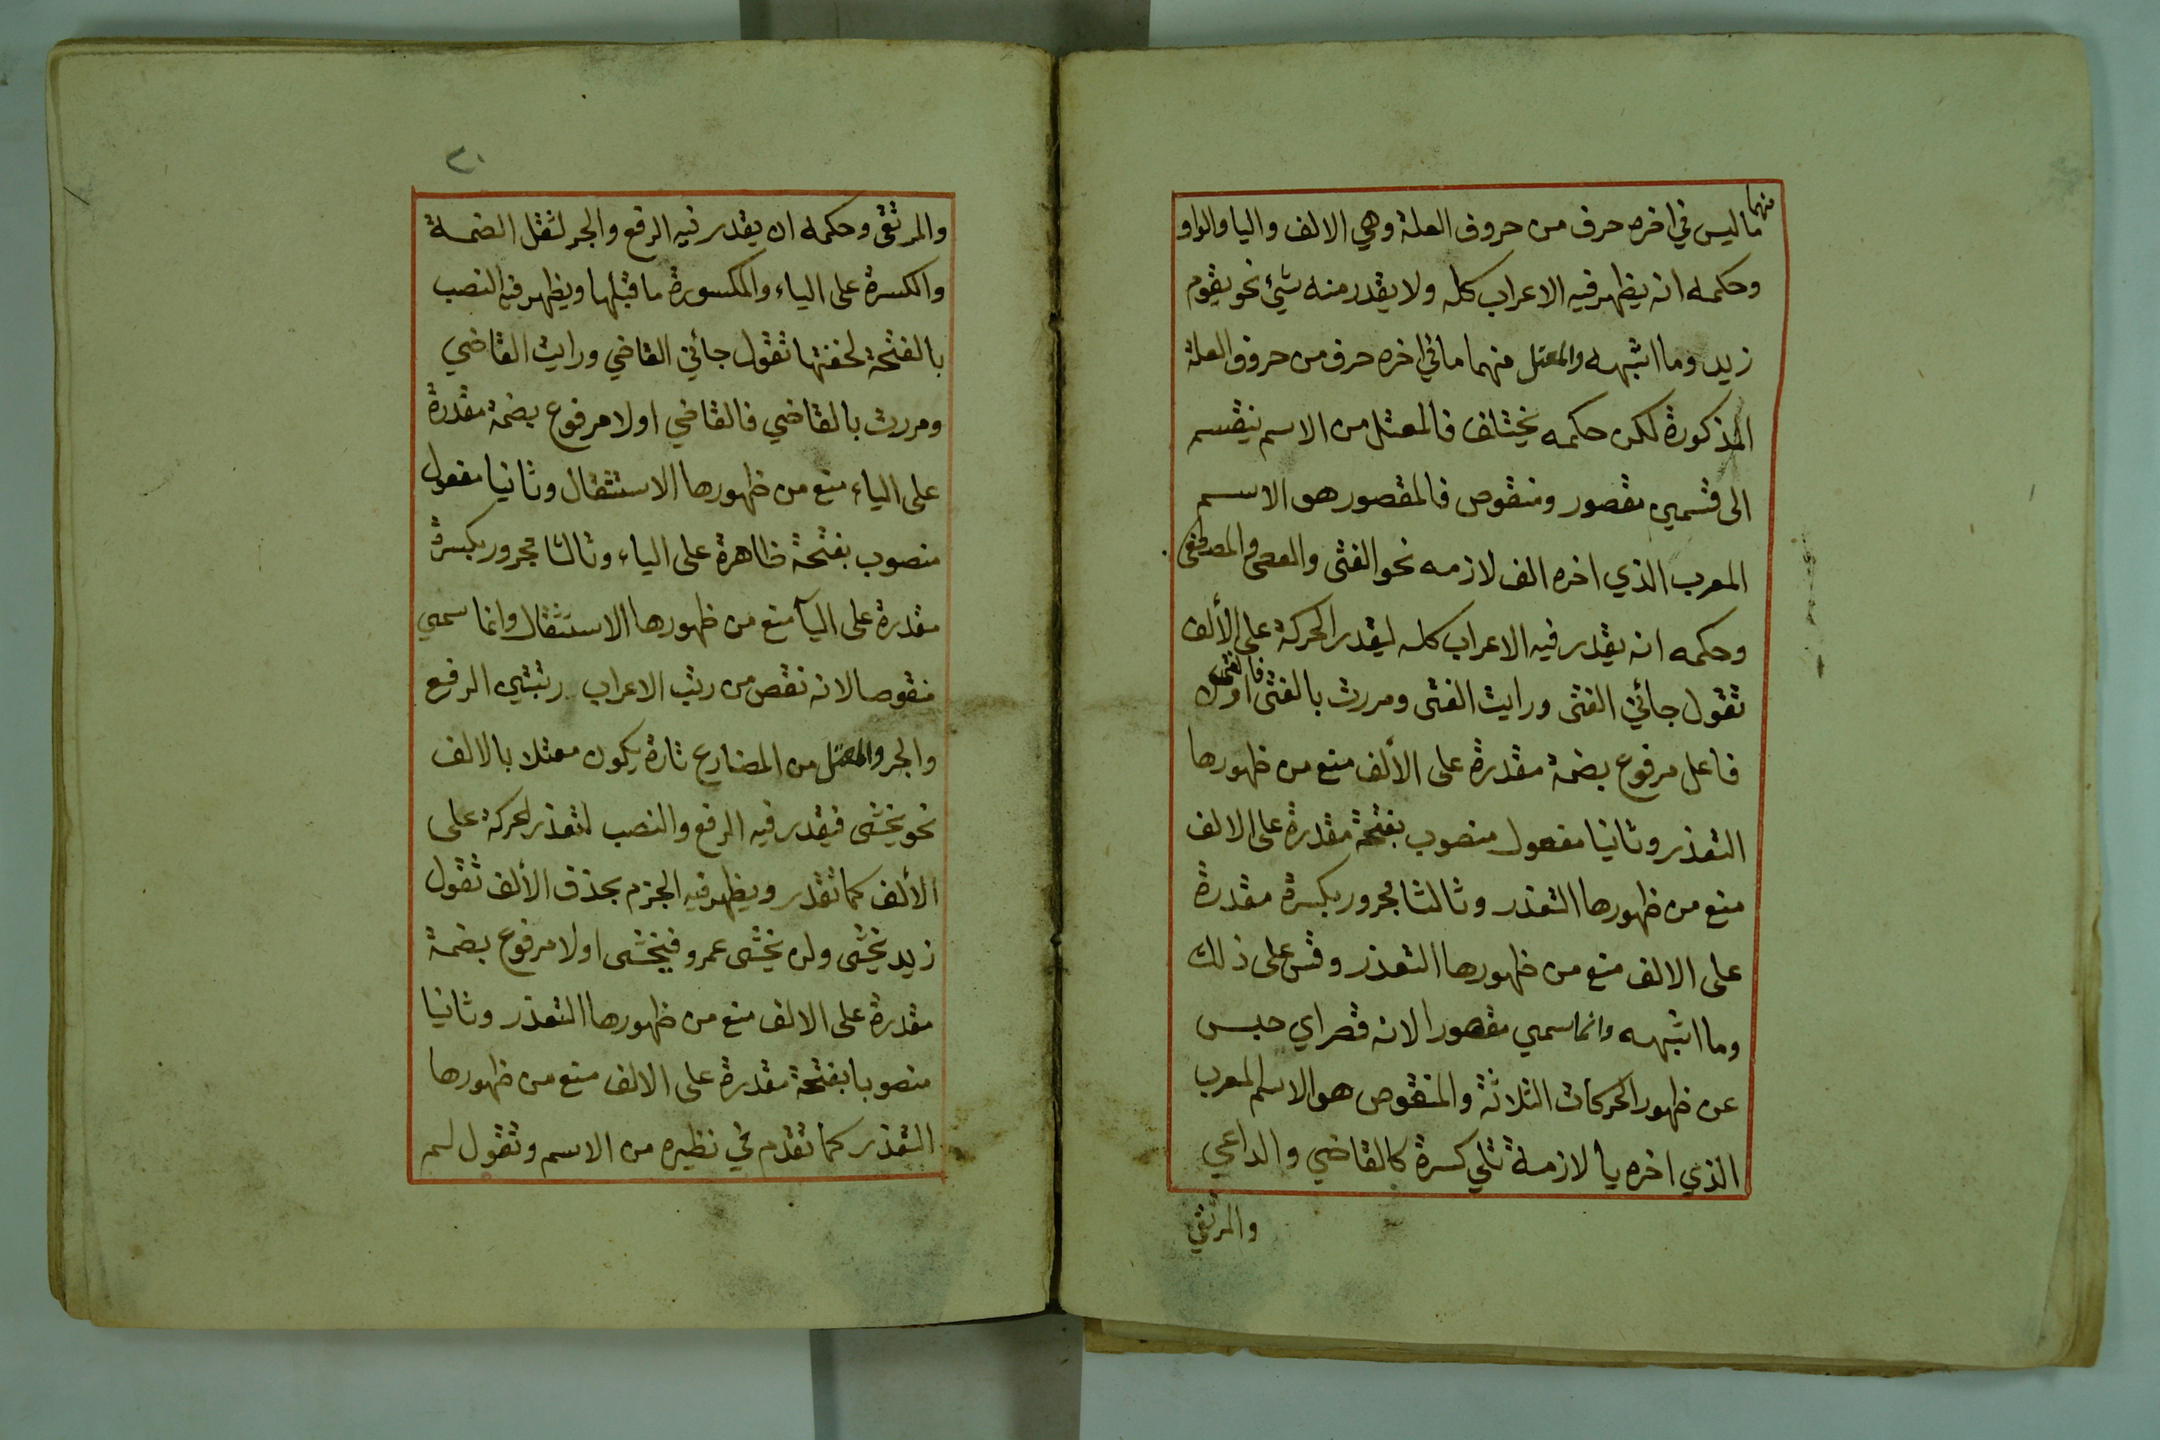 منهما ماليس في اخره حرف من حروف العلة وهي الالف واليا والواو
وحكمه انه يظهر فيه الاعراب كله ولا يقدر منه شئ نحو يقوم
زيد وما اشبهه والمعتل منهما ما في اخره حرف من حروف العلة
المذكورة لكن حكمه يختلف فالمعتل من الاسم ينقسم
الى قسمين مقصور ومنقوص فالمقصور هو الاسم
المعرب الذي اخره الف لازمه نحو الفتى والعصى والمصطفى
وحكمه انه يقدر فيه الاعراب كله ليقدر الحركة على الألف
تقول جائني الفتى ورايت الفتى ومررت بالفتى فالفتى اولا
فاعل مرفوع بضمة مقدرة على الألف منع من ظهورها
التعذر وثانيا مفعول منصوب بفتحة مقدرة على الالف
منع من ظهورها التعذر وثالثا مجرور بكسرة مقدرة
على الالف منع من ظهورها التعذر وقس على ذلك
وما اشبهه وانما سمي مقصورا لانه قصر اي حبس
عن ظهور الحركات الثلاثة والمنقوص هو الاسم المعرب
الذي اخره يا لازمة تلي كسرة كالقاضي والداعي
والمرتقي
٢٠
والمرتقى وحكمه ان يقدر فيه الرفع والجر لثقل الضمة
والكسرة على الياء والمكسورة ما قبلها ويظهر فيه النصب
بالفتحة لخفتها تقول جائني القاضي ورايت القاضي
ومررت بالقاضي فالقاضي اولا مرفوع بضمة مقدرة
على الياء منع من ظهورها الاستثقال وثانيا مفعول
منصوب بفتحة ظاهرة على الياء وثالثا مجرور بكسرة
مقدرة على اليآ منع من ظهورها الاستثقال وانما سمي
منقوصا لانه نقص من رتب الاعراب رتبتين الرفع
والجر والمعتل من المضارع تارة يكون معتلا بالالف
نحو يخشى فيقدر فيه الرفع والنصب لتعذر لحركة على
الألف كما تقدر ويظهر فيه الجزم بحذف الألف تقول
زيد يخشى ولن يخشى عمرو فيخشى اولا مرفوع بضمة
مقدرة على الالف منع من ظهورها التعذر وثانيا
منصوبا بفتحة مقدرة على الالف منع من ظهورها
التعذر كما تقدم في نظيره من الاسم وتقول لم